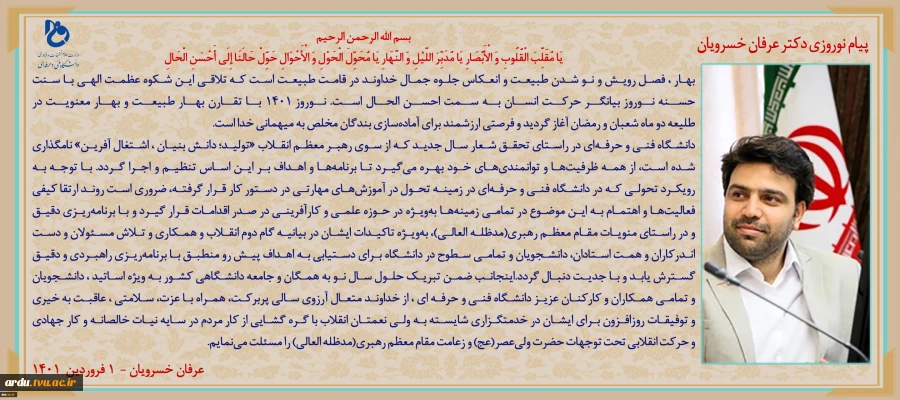 بسم الله الرحمن الرحیم
پیام نوروزی دکتر عرفان خسرویان
یَا مُقَلِّبَ الْقُلُوبِ وَ الْأَبْصَارِ یَا مُدَبِّرَ اللَّیْلِ وَ النَّهَارِ یَا مُحَوِّلَ الْحَوْلِ وَ الْأَحْوَالِ حَوِّلْ حَالَنَا إِلَى أَحْسَنِ الْحَالِ
بهار ، فصل رویش و نو شدن طبیعت و انعکاس جلوه جمال خداوند در قامت طبیعت است که تلاقی این شکوه عظمت الهی با سنت
حسنه نوروز بیانگر حرکت انسان به سمت احسن الحال است. نوروز ۱۴۰۱ با تقارن بهار طبیعت و بهار معنویت در
طلیعه دو ماه شعبان و رمضان آغاز گردید و فرصتی ارزشمند برای آماده‌سازی بندگان مخلص به میهمانی خدا است.
دانشگاه فنی و حرفه‌ای در راستای تحقق شعار سال جدید که از سوی رهبر معظم انقلاب «تولید؛ دانش بنیان ، اشتغال آفرین» نامگذاری
شده است، از همه ظرفیت‌ها و توانمندی‌های خود بهره می‌گیرد تا برنامه‌ها و اهداف بر این اساس تنظیم و اجرا گردد. با توجه به
رویکرد تحولی که در دانشگاه فنی و حرفه‌ای در زمینه تحول در آموزش‌های مهارتی در دستور کار قرار گرفته، ضروری است روند ارتقا کیفی
فعالیت‌ها و اهتمام به این موضوع در تمامی زمینه‌ها به‌ویژه در حوزه علمی و کارآفرینی در صدر اقدامات قرار گیرد و با برنامه‌ریزی دقیق
و در راستای منویات مقام معظم رهبری(مدظله العالی)، به‌ویژه تاکیدات ایشان در بیانیه گام دوم انقلاب و همکاری و تلاش مسئولان و دست
اندرکاران و همت استادان، دانشجویان و تمامی سطوح در دانشگاه برای دستیابی به اهداف پیش رو منطبق با برنامه‌ریزی راهبردی و دقیق
گسترش یابد و با جدیت دنبال گردد.اینجانب ضمن تبریک حلول سال نو به همگان و جامعه دانشگاهی کشور به ویژه اساتید ، دانشجویان
و تمامی همکاران و کارکنان عزیز دانشگاه فنی و حرفه ای ، از خداوند متعال آرزوی سالی پربرکت، همراه با عزت، سلامتی ، عاقبت به خیری
و توفیقات روزافزون برای ایشان در خدمتگزاری شایسته به ولی نعمتان انقلاب با گره گشایی از کار مردم در سایه نیات خالصانه و کار جهادی
و حرکت انقلابی تحت توجهات حضرت ولی‌عصر(عج) و زعامت مقام معظم رهبری(مدظله العالی) را مسئلت می‌نمایم.
عرفان خسرویان - ۱ فروردین ۱۴۰۱
ardu.tvu.ac.ir